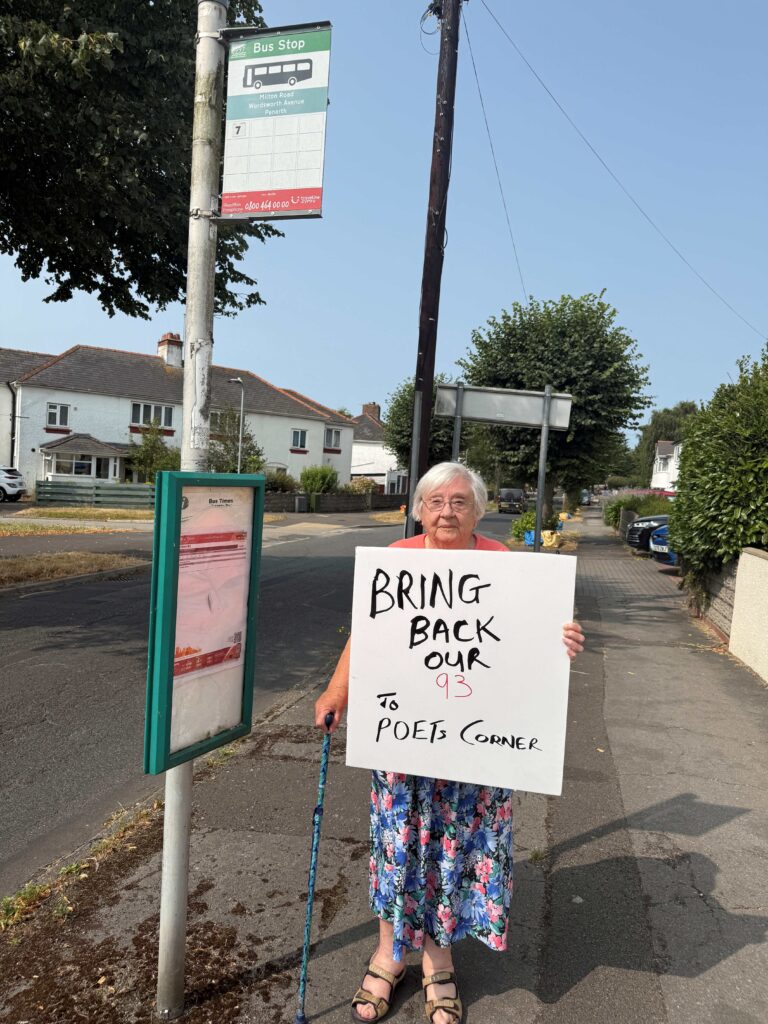 Bus Stop
Milton Road
Wordsworth Avenue
Penarth
7
0800 464 00 00
Bus Times
BRING
BACK
OUR
93
TO
POETs CORNER